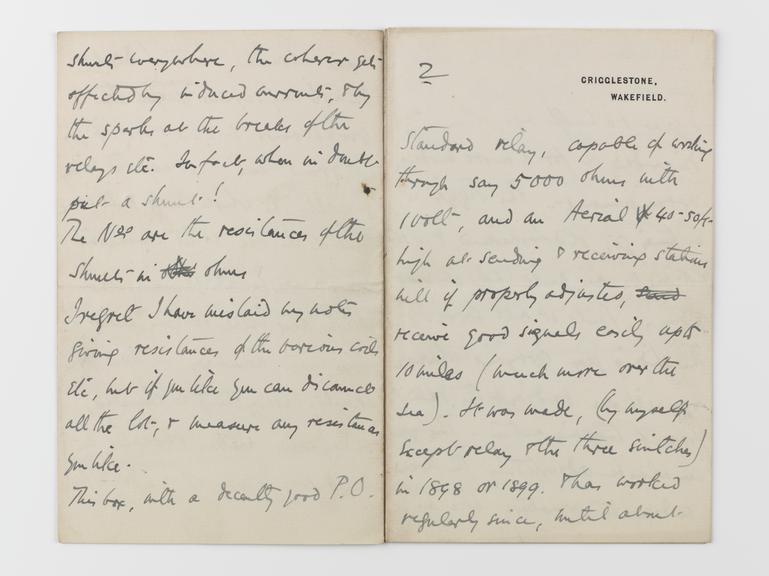 shunts everywhere, the coherer gets
affected by induced currents, & by
the sparks at the breaks of the
relays etc. In fact, when in doubt
put a shunt!
The Nos are the resistances of the
shunts in ohms
I regret I have mislaid my notes
giving resistances of the various coils
etc, but if you like you can disconnect
all the lot, & measure any resistances
you like.
This box, with a decently good P.O.
2
CRIGGLESTONE,
WAKEFIELD.
Standard relay, capable of working
through say 5000 ohms with
1 volt, and an Aerial 40-50 ft
high at sending & receiving stations
will if properly adjusted,
receive good signals easily up to
10 miles (much more over the
sea). It was made, (by myself
except relay & the three switches)
in 1898 or 1899. & has worked
regularly since, until about